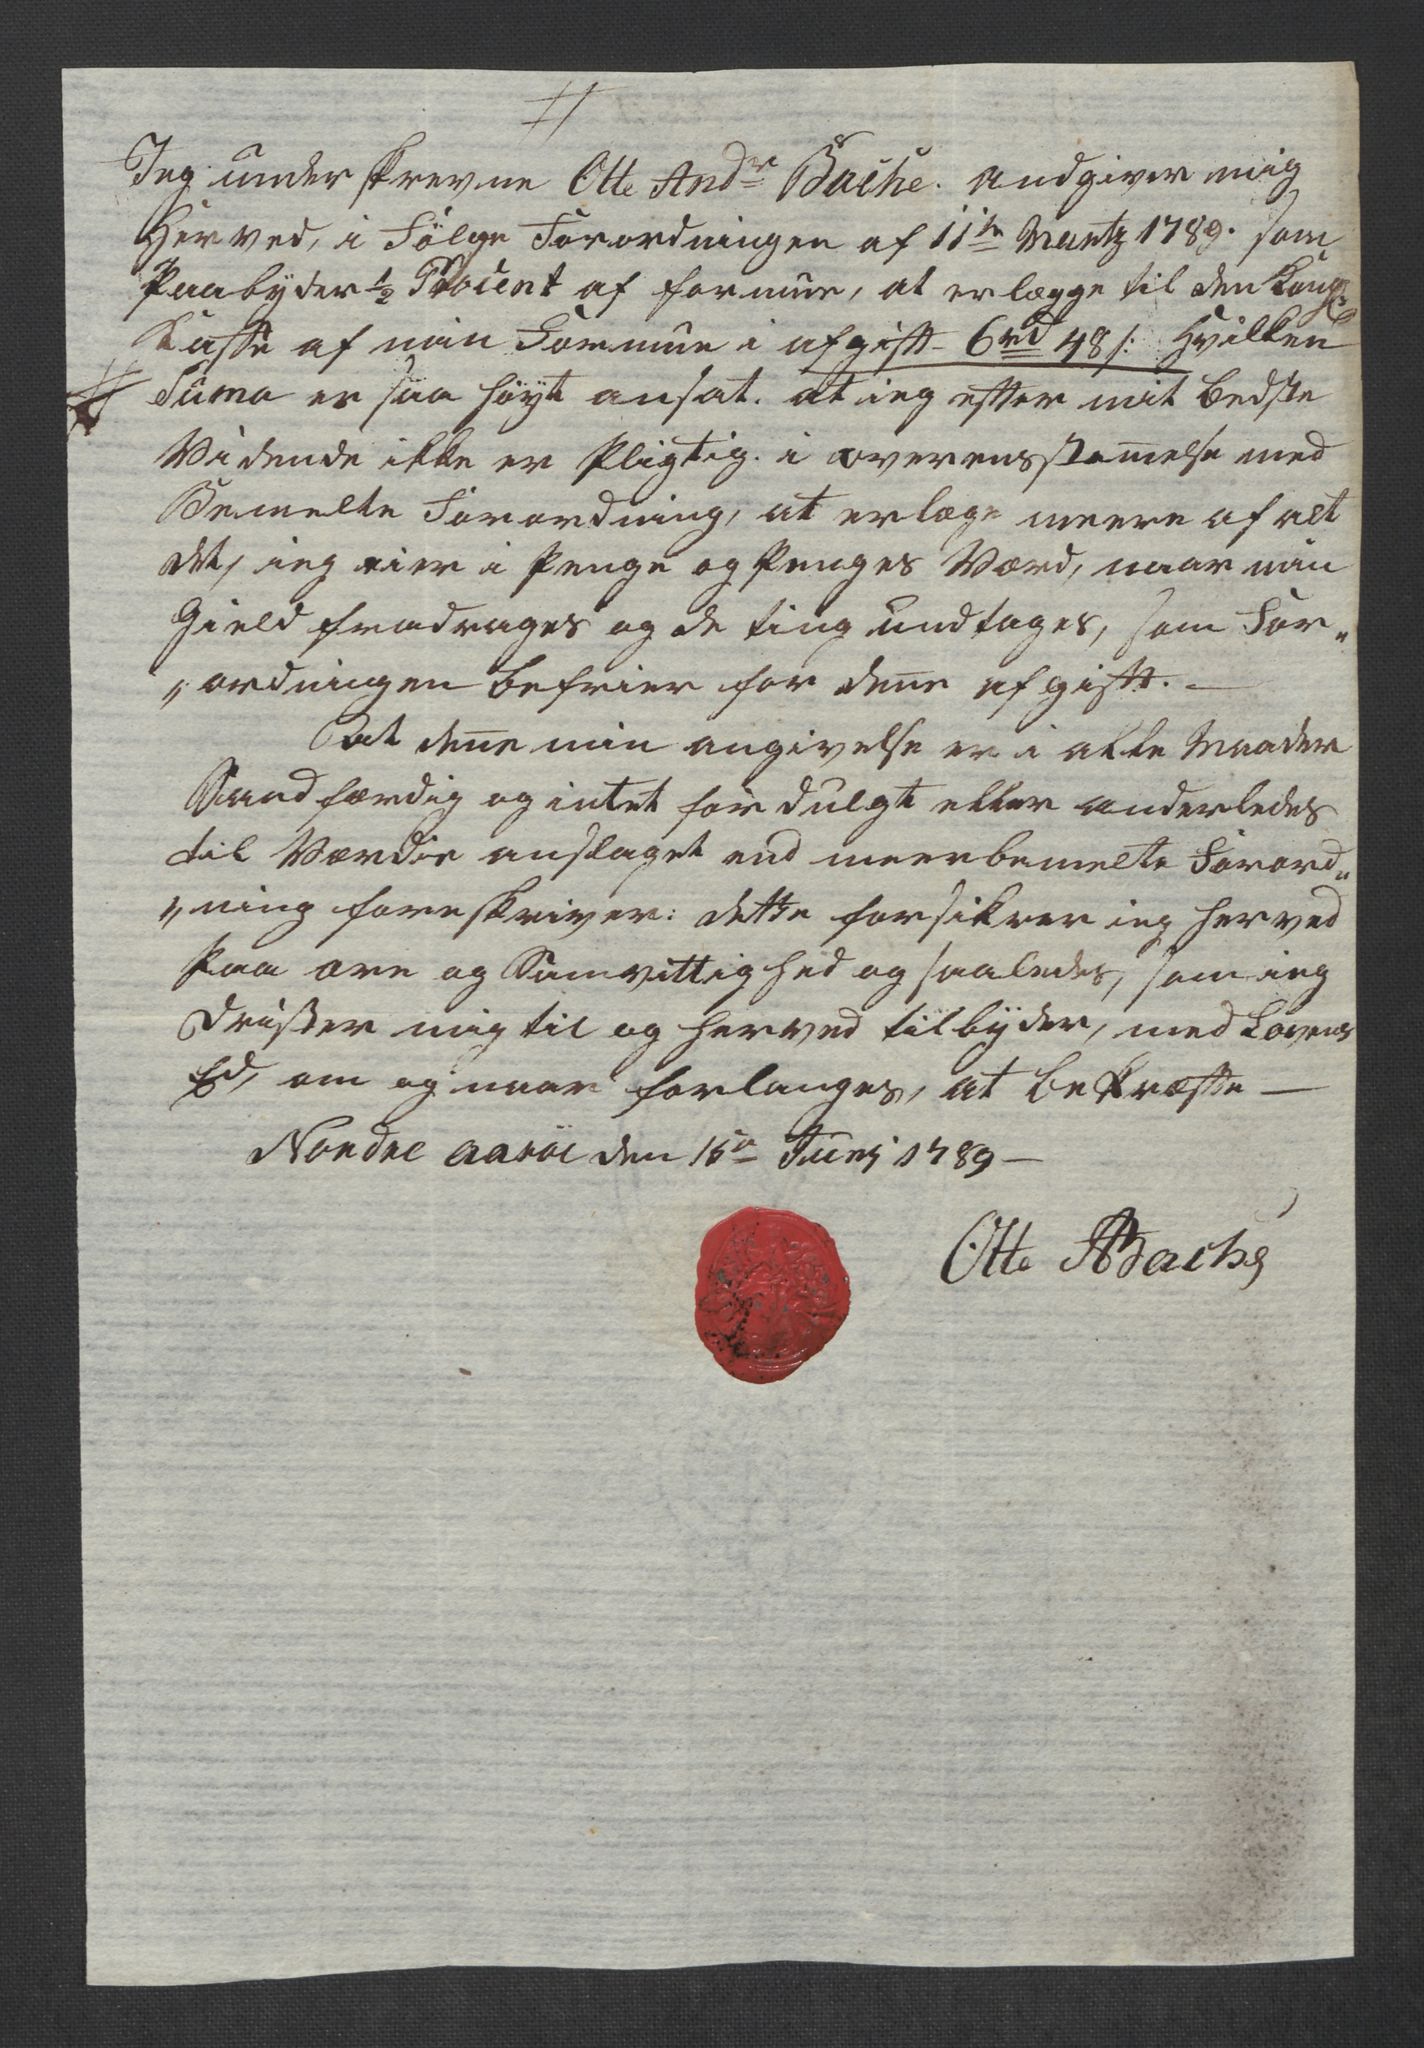 Jeg underskrevne Otte Andr Bache. andgiver mig
Herved, i Følge Forordningen af 11te Martz 1789. som
Paabyder ½ Procent af formue, at erlægge til den Kongl:
Kasse af min Formue i afgift 6rd 48 s: Hvilken
Suma er saa høyt ansat. at ieg efter mit bedste
Vidende ikke er Pligtig. i overensstem̅else med
Bemelte Forordning, at erlæge meere af alt
det, ieg eier i Penge og Penges Værd, naar min
Gield fradrages og de ting undtages, som For„
„ordningen befrier for den̅e afgift. —
at den̅e min angivelse er i alle Maader
Sandfærdig og intet fordulgt eller anderledes
til Værdie anslaget end meerbemelte Forord„
„ning foreskriver: dette forsikrer ieg herved
Paa ære og Samvittighed og saaledes, som ieg
drister mig til og herved tilbyder, med Lovens
Ed, om og naar forlanges, at bekræfte —
Nordre Aarøe den 15de Junij 1789 —
Otte ABache